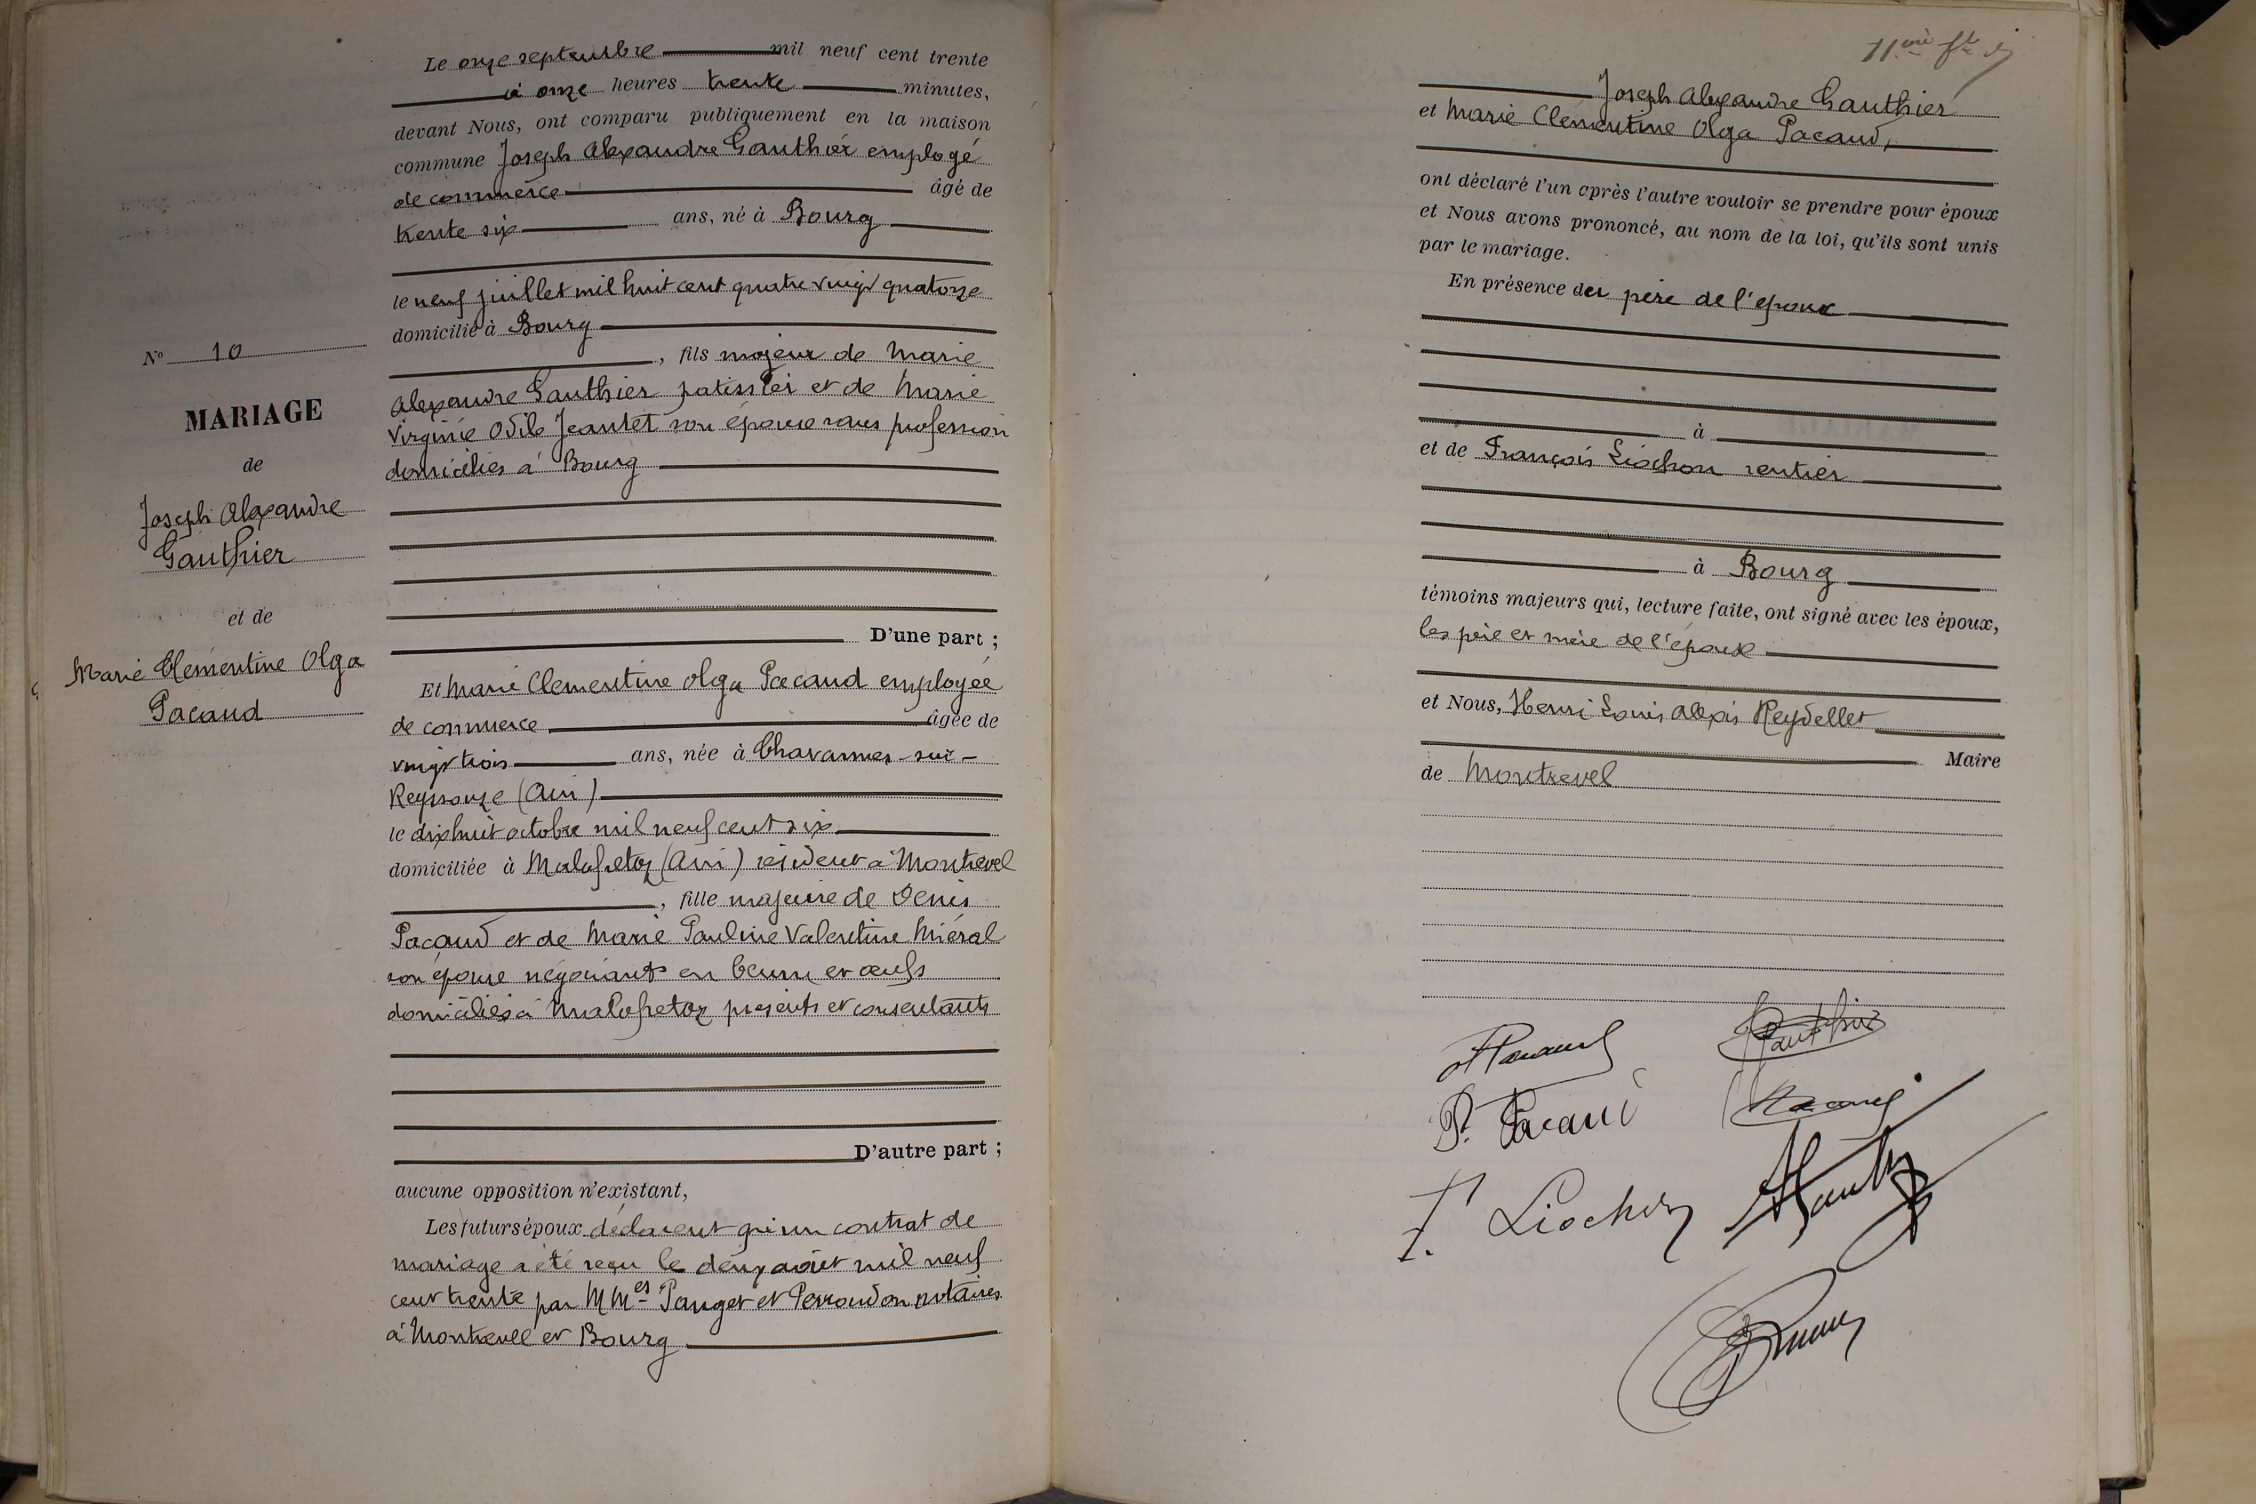 Le onze septembre mil neuf cent trente
à onze heures trente minutes,
devant Nous, ont comparu publiquement en la maison
commune Joseph Alexandre Gauthier employé
de commerce âgé de
trente six ans, né à Bourg
le neuf juillet mil huit cent quatre vingt quatorze
domicilié à Bourg
, fils majeur de Marie
Alexandre Gauthier patissier et de Marie
Virginie Odile Jeantet son épouse sans profession
domiciliés à Bourg
D'une part ;
Et Marie Clementine Olga Pacaud employée
de commerce âgée de
vingt trois ans, née à Chavannes-sur-
Reyssouze (Ain)
le dix huit octobre mil neuf cent six
domiciliée à Malafretaz (Ain) résident à Montrevel
, fille majeure de Denis
Pacaud et de Marie Pauline Valentine Miéral
son épouse négociants en beurre et œufs
domiciliés à Malafretaz présents et consentants
D'autre part ;
aucune opposition n'existant,
Les futurs époux déclarent qu'un contrat de
mariage a été reçu le deux août mil neuf
cent trente par MMes Pauget et Perroudon notaires
à Montrevel et Bourg
No 10
MARIAGE
de
Joseph Alexandre
Gauthier
et de
Marie Clémentine Olga
Pacaud
11eme
Joseph Alexandre Gauthier
et Marie Clémentine Olga Pacaud,
ont déclaré l'un après l'autre vouloir se prendre pour époux
et Nous avons prononcé, au nom de la loi, qu'ils sont unis
par le mariage.
En présence du père de l'époux
à
et de François Liochon rentier
à Bourg
témoins majeurs qui, lecture faite, ont signé avec les époux,
les père et mère de l'épouse
et Nous, Henri Louis Alexis Reydellet
Maire
de Montrevel
Pacaud
Gauthier
P. Pacaud
F. Liochon